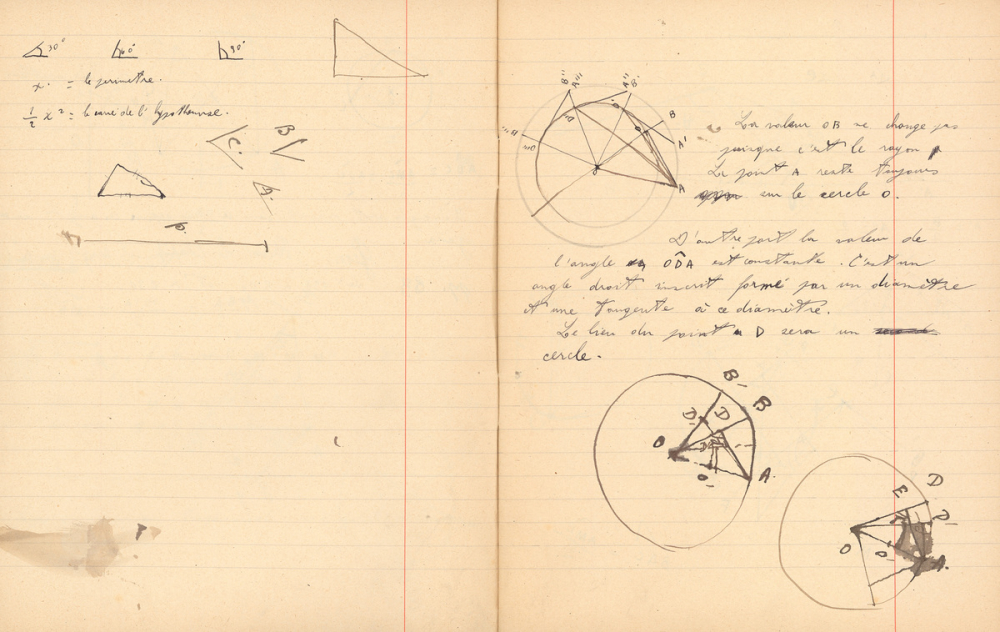 30° 60° 90°
x = le périmètre.
½ x² = le carré de l'hypothénuse.
C B
A
p.
B'' A''' A'' B' B
D D
B''' D A'
O
A
La valeur OB ne change pas
puisque c'est le rayon
Le point A reste toujours
sur le cercle O.
D'autre part la valeur de
l'angle ODA est constante. C'est un
angle droit inscrit formé par un diamètre
et une tangente à ce diamètre.
Le lieu du point D sera un
cercle.
B' B
D' D
O
O' A
D
E D'
O O' A